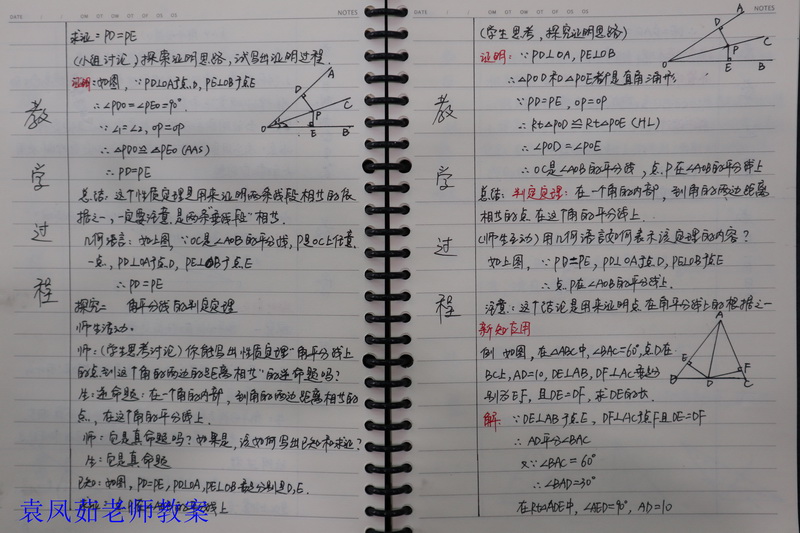 DATE
NOTES
教学过程
求证:PD=PE
(小组讨论)探索证明思路,试写出证明过程.
证明:如图,∵PD⊥OA于点D,PE⊥OB于点E
∴∠PDO=∠PEO=90°.
∵∠1=∠2,OP=OP
∴△PDO≌△PEO(AAS)
∴PD=PE
总结:这个性质定理是用来证明两条线段相等的依
据之一,一定要注意是两条垂线段"相等.
几何语言:如上图,∵OC是∠AOB的平分线,P是OC上任意
一点,PD⊥OA于点D,PE⊥OB于点E
∴PD=PE
探究二 角平分线的判定定理
师生活动.
师:(学生思考讨论)你能写出性质定理"角平分线上
的点到这个角的两边的距离相等"的逆命题吗?
生:逆命题:在一个角的内部,到角的两边距离相等的
点,在这个角的平分线上.
师:它是真命题吗?如果是,该如何写出已知和求证?
生:它是真命题
已知:如图,PD=PE,PD⊥OA,PE⊥OB垂足分别是D,E.
A
D
C
P
O
E
B
袁凤茹老师教案
DATE
NOTES
教学过程
(学生思考,探究证明思路)
证明:∵PD⊥OA,PE⊥OB
∴△POD和△POE都是直角三角形
∵PD=PE,OP=OP
∴Rt△POD≌Rt△POE(HL)
∴∠POD=∠POE
∴OC是∠AOB的平分线,点P在∠AOB的平分线上
总结:判定定理:在一个角的内部,到角的两边距离
相等的点在这个角的平分线上.
(师生互动)用几何语言如何表示该定理的内容?
如上图,∵PD=PE,PD⊥OA于点D,PE⊥OB于点E
∴点P在∠AOB的平分线上.
注意:这个结论是用来证明点在角平分线上的根据之一
新知应用
例 如图,在△ABC中,∠BAC=60°,点D在
BC上,AD=10,DE⊥AB,DF⊥AC垂足分
别为E,F,且DE=DF,求DE的长.
解:∵DE⊥AB于点E,DF⊥AC于点F且DE=DF
∴AD平分∠BAC
又∵∠BAC=60°
∴∠BAD=30°
在Rt△ADE中,∠AED=90°,AD=10
A
D
C
P
O
E
B
A
E
F
D
C